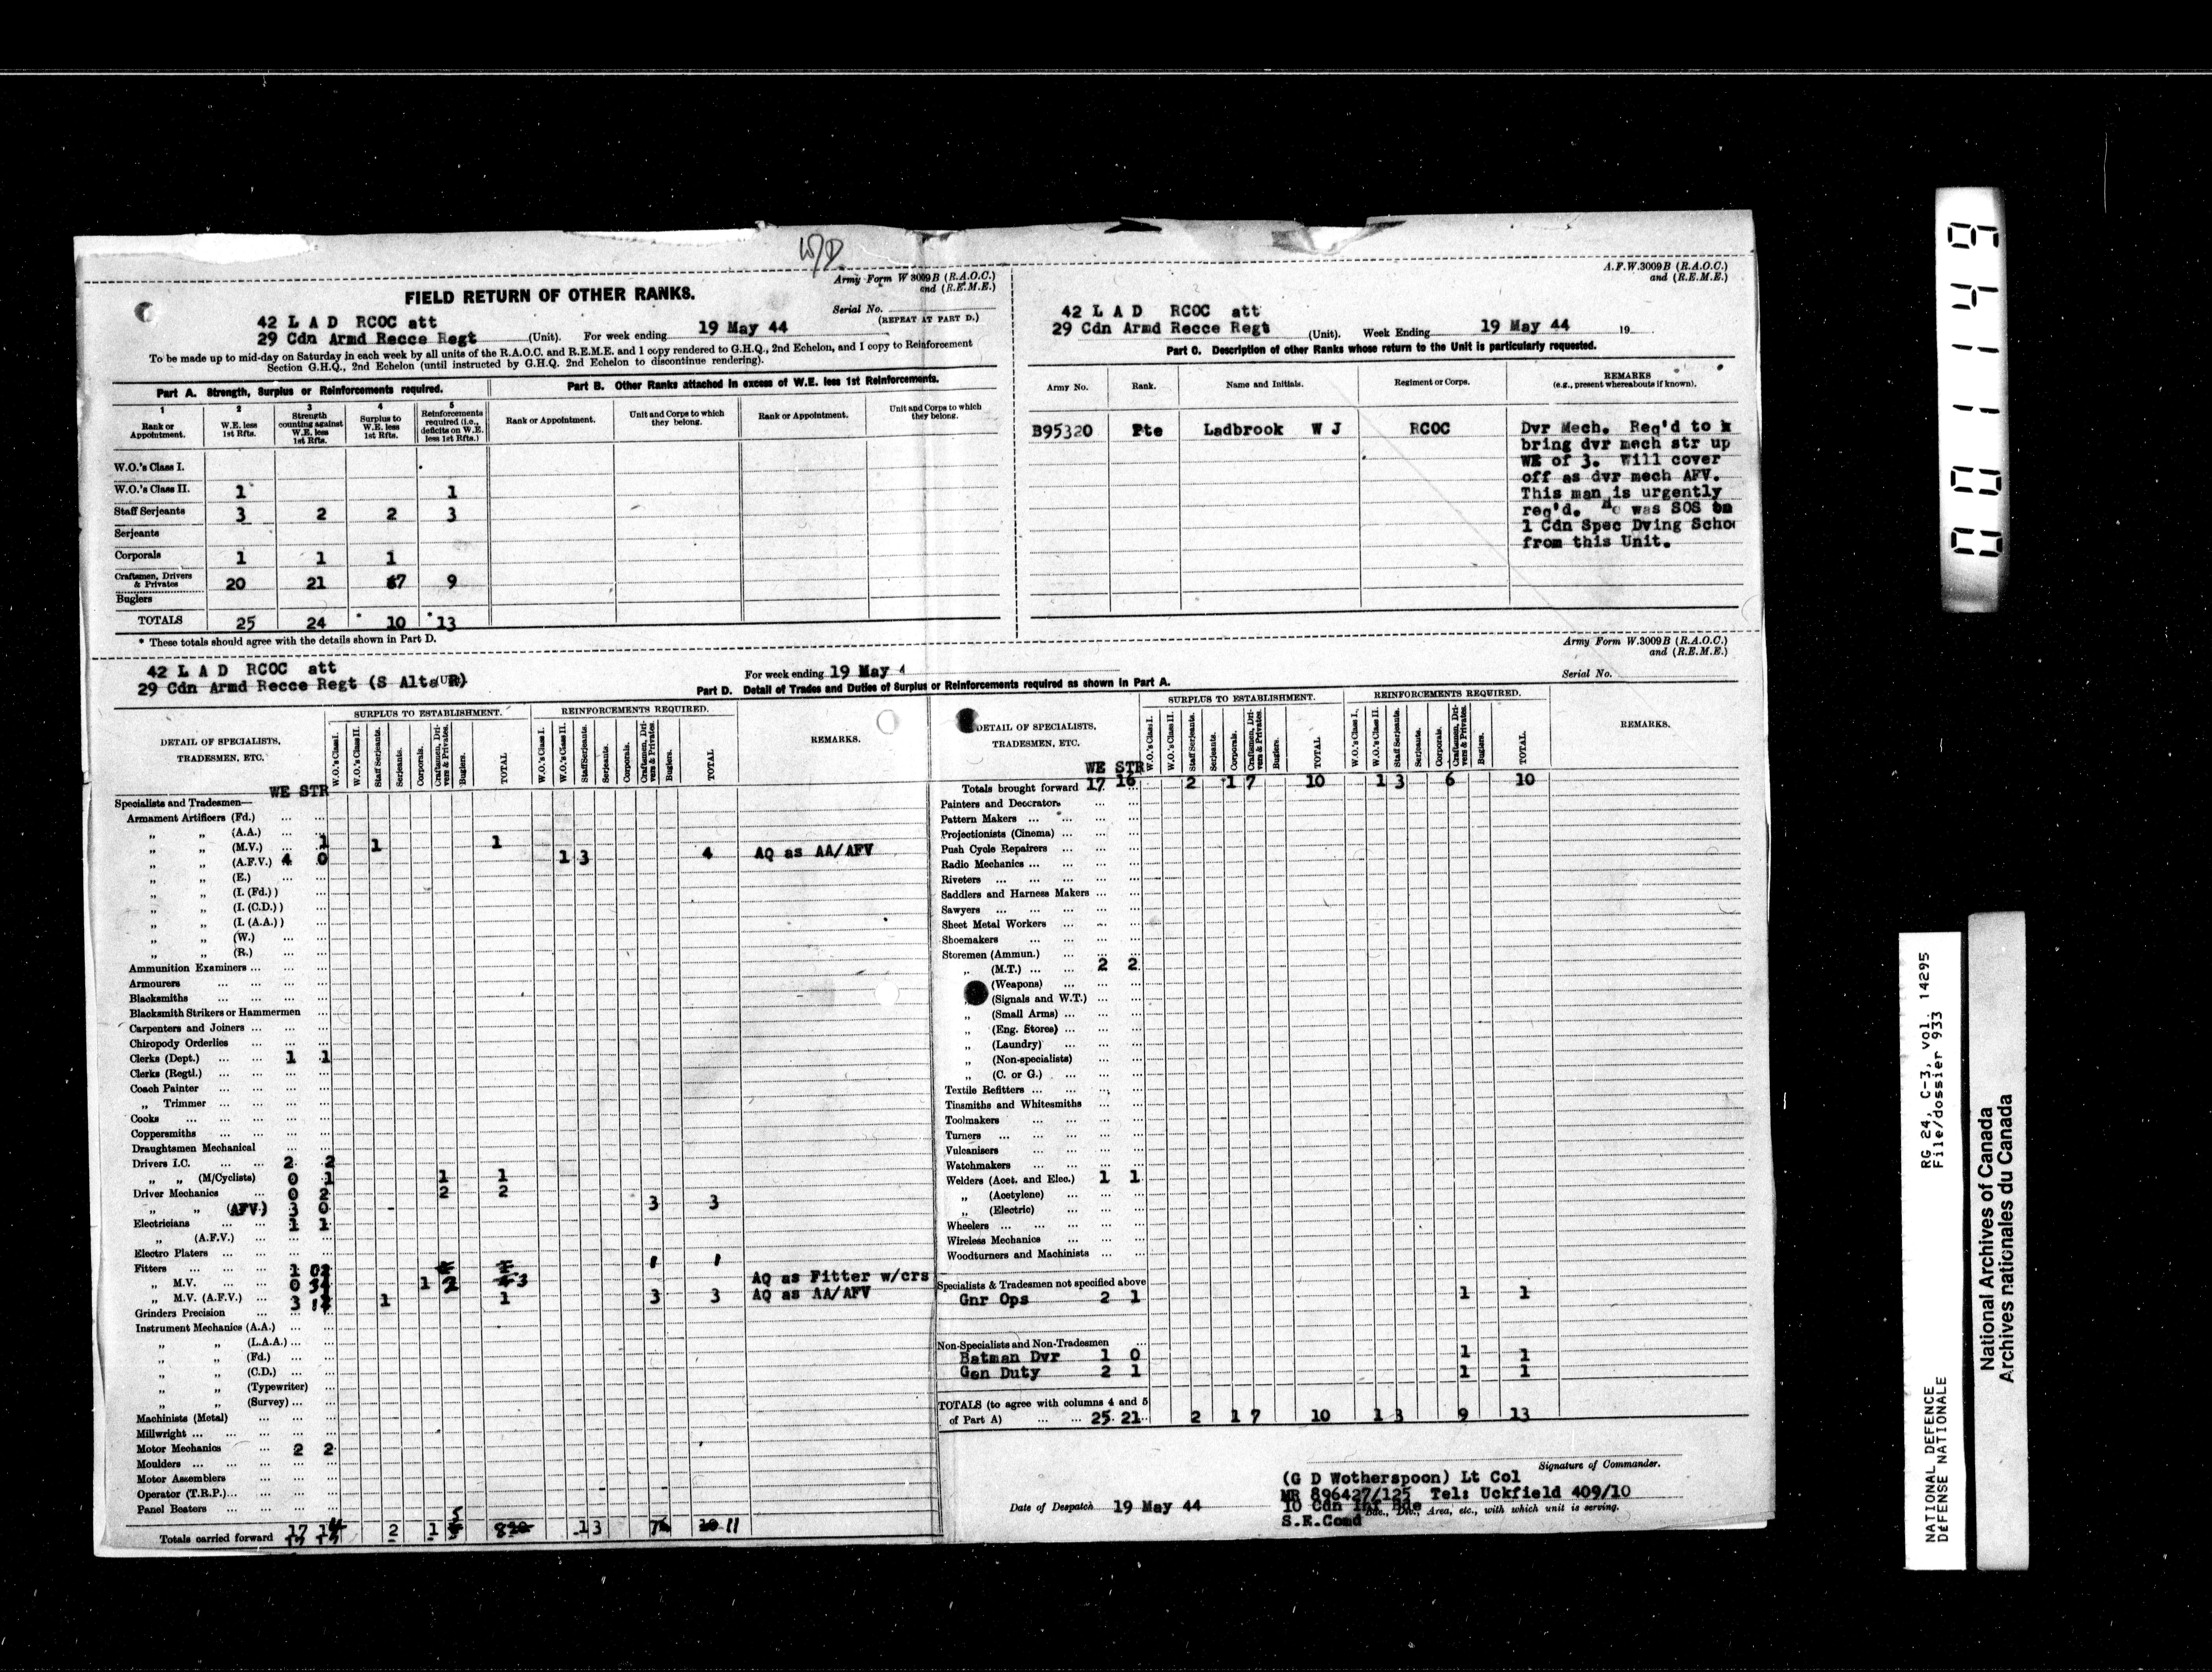 W/D
Army Form W 3009B (R.A.O.C.)
and (R.E.M.E.)
FIELD RETURN OF OTHER RANKS.
Serial No.
(REPEAT AT PART D.)
42 L A D RCOC att
29 Cdn Armd Recce Regt (Unit). For week ending 19 May 44
To be made up to mid-day on Saturday in each week by all units of the R.A.O.C. and R.E.M.E. and 1 copy rendered to G.H.Q., 2nd Echelon, and 1 copy to Reinforcement
Section G.H.Q., 2nd Echelon (until instructed by G.H.Q. 2nd Echelon to discontinue rendering).
Part A. Strength, Surplus or Reinforcements required.
Part B. Other Ranks attached in excess of W.E. less 1st Reinforcements.
1 2 3 4 5
Rank or Appointment. W.E. less 1st Rfts. Strength counting against W.E. less 1st Rfts. Surplus to W.E. less 1st Rfts. Reinforcements required (i.e., deficits on W.E. less 1st Rfts.)
Rank or Appointment. Unit and Corps to which they belong. Rank or Appointment. Unit and Corps to which they belong.
W.O.'s Class I.
W.O.'s Class II. 1 1
Staff Serjeants 3 2 2 3
Serjeants
Corporals 1 1 1
Craftsmen, Drivers & Privates 20 21 7 9
Buglers
TOTALS 25 24 * 10 * 13
* These totals should agree with the details shown in Part D.
A.F.W.3009B (R.A.O.C.)
and (R.E.M.E.)
42 L A D RCOC att
29 Cdn Armd Recce Regt (Unit). Week Ending 19 May 44 19
Part C. Description of other Ranks whose return to the Unit is particularly requested.
Army No. Rank. Name and Initials. Regiment or Corps. REMARKS (e.g., present whereabouts if known).
B95320 Pte Ladbrook W J RCOC Dvr Mech. Req'd to
bring dvr mech str up
WE of 3. Will cover
off as dvr mech AFV.
This man is urgently
req'd. He was SOS on
1 Cdn Spec Dving Scho
from this Unit.
Army Form W.3009B (R.A.O.C.)
and (R.E.M.E.)
Serial No.
42 L A D RCOC att
29 Cdn Armd Recce Regt (S Alta R)
For week ending 19 May 4
Part D. Detail of Trades and Duties of Surplus or Reinforcements required as shown in Part A.
DETAIL OF SPECIALISTS, TRADESMEN, ETC.
SURPLUS TO ESTABLISHMENT. REINFORCEMENTS REQUIRED. REMARKS.
W.O.'s Class I. W.O.'s Class II. Staff Serjeants. Serjeants. Corporals. Craftsmen, Drivers & Privates. Buglers. TOTAL
W.O.'s Class I. W.O.'s Class II. Staff Serjeants. Serjeants. Corporals. Craftsmen, Drivers & Privates. Buglers. TOTAL
WE STR
Specialists and Tradesmen—
Armament Artificers (Fd.)
" " (A.A.)
" " (M.V.) 1 1 1
" " (A.F.V.) 4 0 1 3 4 AQ as AA/AFV
" " (E.)
" " (I. (Fd.))
" " (I. (C.D.))
" " (I. (A.A.))
" " (W.)
" " (R.)
Ammunition Examiners
Armourers
Blacksmiths
Blacksmith Strikers or Hammermen
Carpenters and Joiners
Chiropody Orderlies
Clerks (Dept.) 1 1
Clerks (Regtl.)
Coach Painter
" Trimmer
Cooks
Coppersmiths
Draughtsmen Mechanical
Drivers I.C. 2 2
" " (M/Cyclists) 0 1 1 1
Driver Mechanics 0 2 2 2
" " (AFV) 3 0 3 3
Electricians 1 1
" (A.F.V.)
Electro Platers
Fitters 1 0 1 1
" M.V. 0 3 1 2 3 AQ as Fitter w/crs
" M.V. (A.F.V.) 3 1 1 1 3 3 AQ as AA/AFV
Grinders Precision
Instrument Mechanics (A.A.)
" " (L.A.A.)
" " (Fd.)
" " (C.D.)
" " (Typewriter)
" " (Survey)
Machinists (Metal)
Millwright
Motor Mechanics 2 2
Moulders
Motor Assemblers
Operator (T.R.P.)
Panel Beaters
Totals carried forward 17 2 1 5 8 1 3 7 11
DETAIL OF SPECIALISTS, TRADESMEN, ETC.
SURPLUS TO ESTABLISHMENT. REINFORCEMENTS REQUIRED. REMARKS.
W.O.'s Class I. W.O.'s Class II. Staff Serjeants. Serjeants. Corporals. Craftsmen, Drivers & Privates. Buglers. TOTAL
W.O.'s Class I. W.O.'s Class II. Staff Serjeants. Serjeants. Corporals. Craftsmen, Drivers & Privates. Buglers. TOTAL.
WE STR
Totals brought forward 17 16 2 1 7 10 1 3 6 10
Painters and Decorators
Pattern Makers
Projectionists (Cinema)
Push Cycle Repairers
Radio Mechanics
Riveters
Saddlers and Harness Makers
Sawyers
Sheet Metal Workers
Shoemakers
Storemen (Ammun.)
" (M.T.) 2 2
(Weapons)
(Signals and W.T.)
" (Small Arms)
" (Eng. Stores)
" (Laundry)
" (Non-specialists)
" (C. or G.)
Textile Refitters
Tinsmiths and Whitesmiths
Toolmakers
Turners
Vulcanisers
Watchmakers
Welders (Acet. and Elec.) 1 1
" (Acetylene)
" (Electric)
Wheelers
Wireless Mechanics
Woodturners and Machinists
Specialists & Tradesmen not specified above
Gnr Ops 2 1 1 1
Non-Specialists and Non-Tradesmen
Batman Dvr 1 0 1 1
Gen Duty 2 1 1 1
TOTALS (to agree with columns 4 and 5
of Part A) 25 21 2 1 7 10 1 3 9 13
Signature of Commander.
(G D Wotherspoon) Lt Col
MR 896427/125 Tel: Uckfield 409/10
Date of Despatch 19 May 44
10 Cdn Inf Bde
Bde., Div., Area, etc., with which unit is serving.
S.E.Comd
001149
RG 24, C-3, vol. 14295
File/dossier 933
NATIONAL DEFENCE
DÉFENSE NATIONALE
National Archives of Canada
Archives nationales du Canada